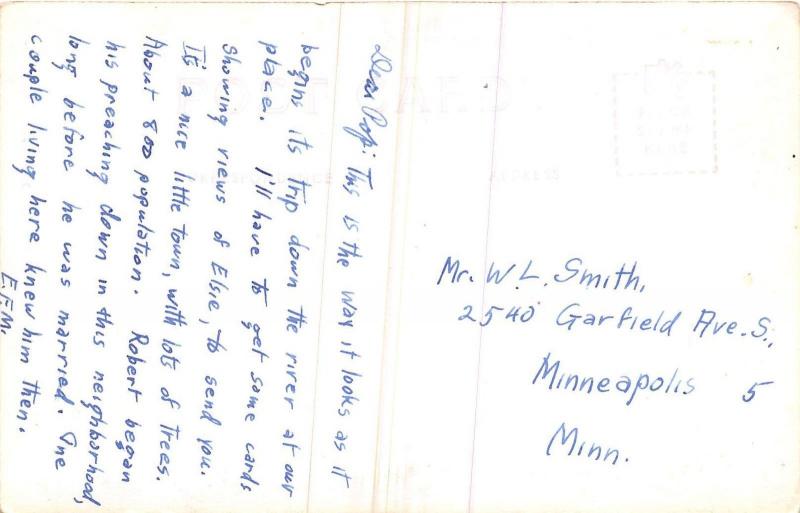 POST CARD
CORRESPONDENCE
ADDRESS
PLACE
STAMP
HERE
Dear Pop: This is the way it looks as it
begins its trip down the river at our
place. I'll have to get some cards
showing views of Elsie, to send you.
It's a nice little town, with lots of trees.
About 800 population. Robert began
his preaching down in this neighborhood,
long before he was married. One
couple living here knew him then.
E.F.M.
Mr. W. L. Smith,
2540 Garfield Ave. S.,
Minneapolis 5
Minn.